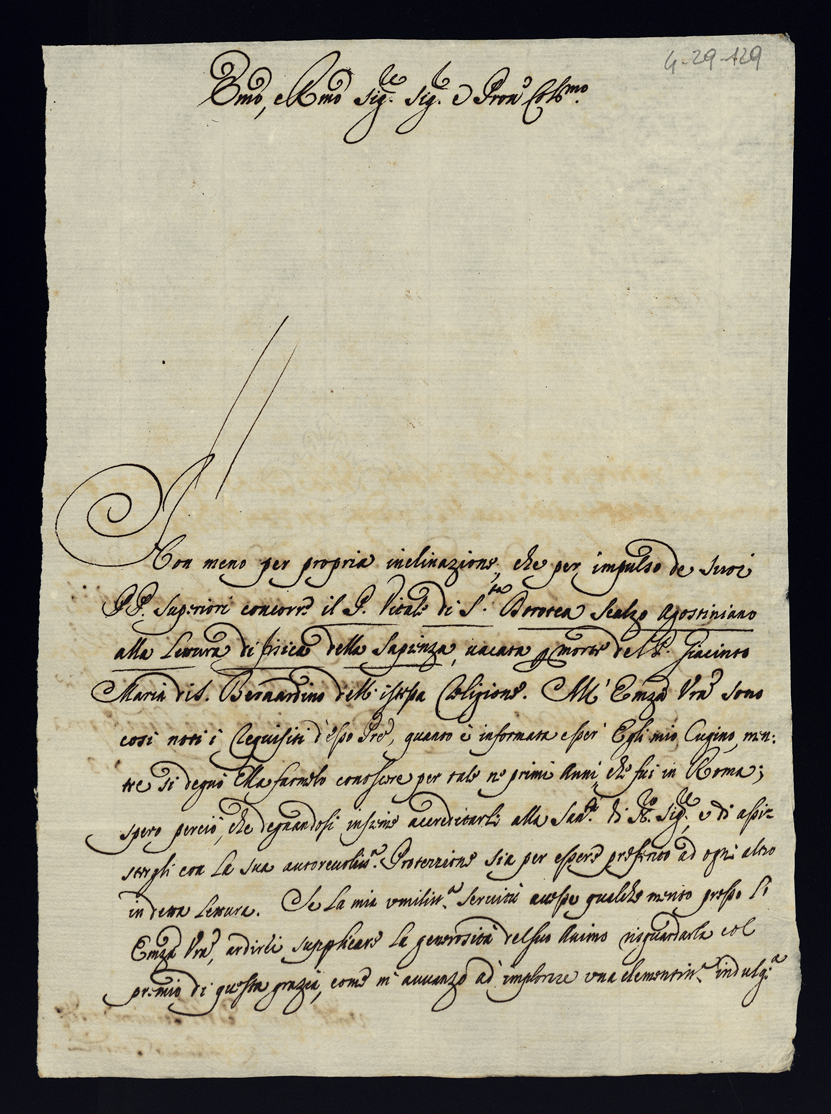 4-29-129
Emo, e Rmo Sig.re Sig.r e Pron Col.mo
Non meno per propria inclinazione, che per impulso de suoi
PP. Superiori concorre il P. Vitale di S.ta Dorotea Scalzo Agostiniano
alla Lettura di fisica della Sapienza, vacata p morte del P. Giacinto
Maria di S. Bernardino dell' istessa Religione. All' Emza Vra sono
cosi noti i Requisiti d'esso Pre, quanto è informata esser Egli mio Cugino, men:
tre si degnò Ella farmelo conoscere per tale ne primi Anni, che fui in Roma;
spero perciò, che degnandosi insieme accreditarlo alla San.tà di N.ro Sig.re, e di assi=
stergli con la sua autorevoliss.a Protezzione sia per essere preferito ad ogni altro
in detta Lettura. Se la mia umiliss.a servitù avesse qualche merito presso l'
Emza Vra, ardirei supplicare la generosità del suo Animo risguardarla col
premio di questa grazia, come m' avvanzo ad implorare una clementiss.a indulg.a